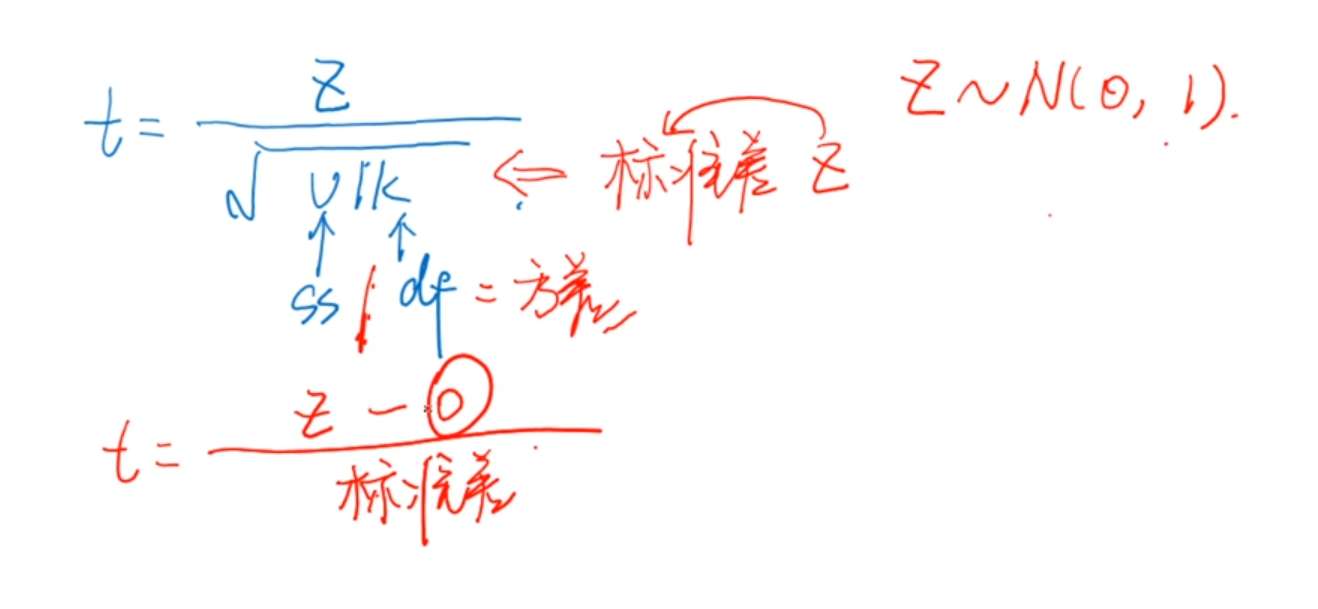 t = Z / √(V/k) ⇐ 标准差 Z
Z ~ N(0, 1).
↑ ↑
SS / df = 方差
t = (Z - 0) / 标准差